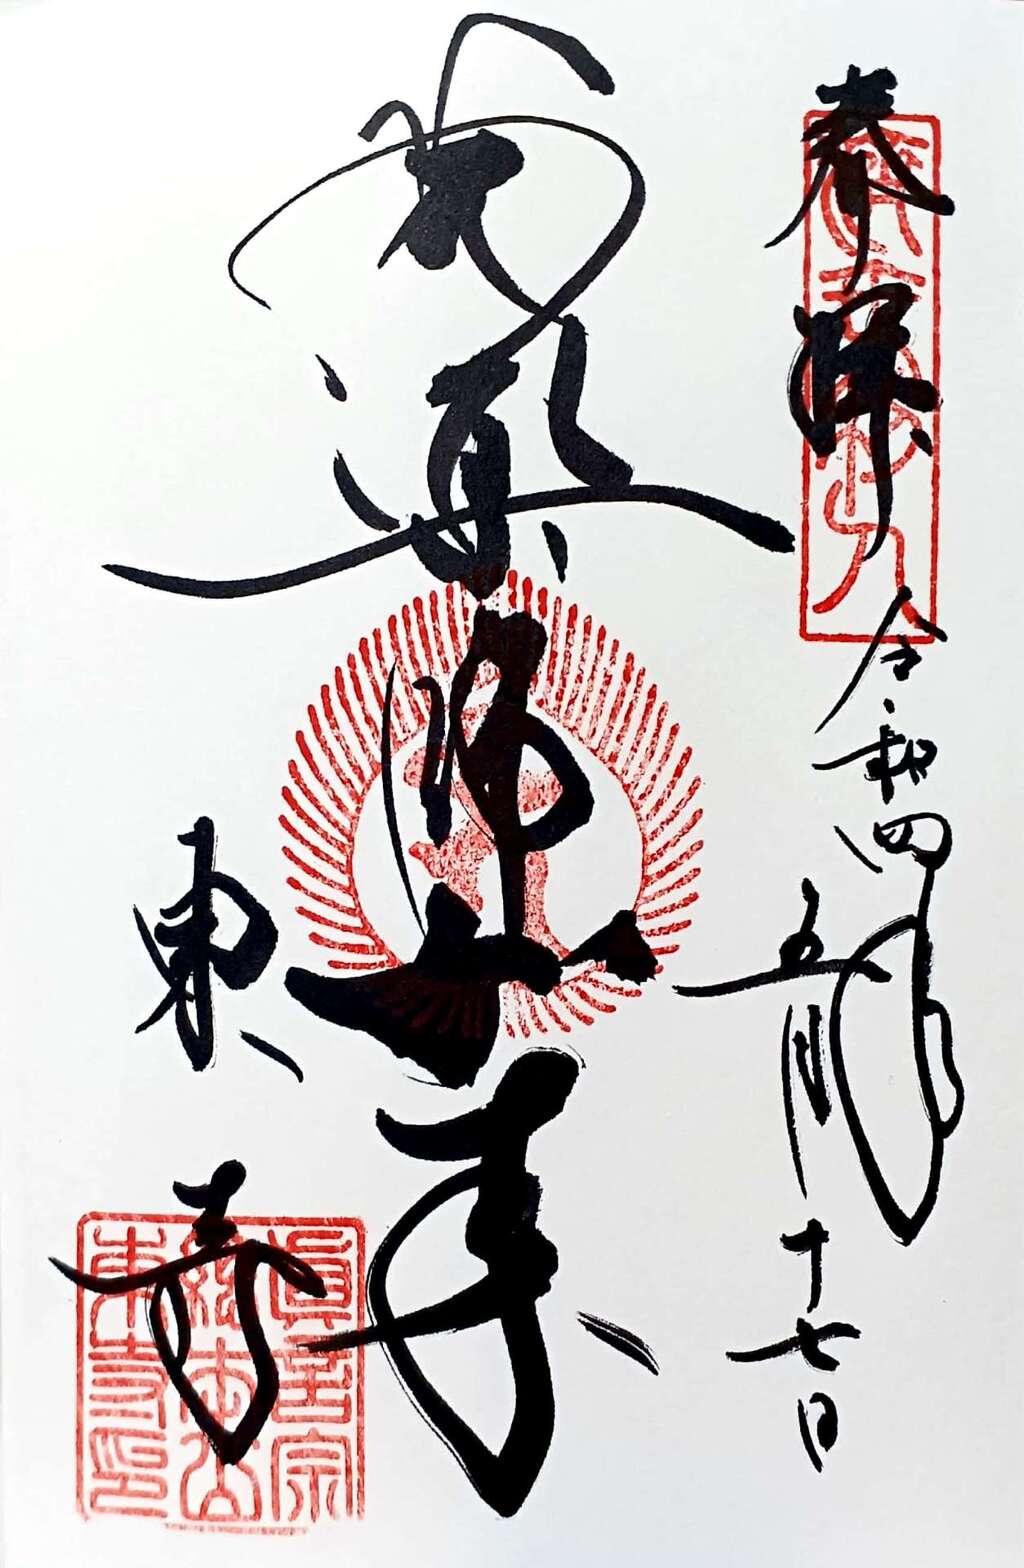 奉拝
令和四年五月十七日
薬師如来
東寺
眞言宗
總本山
東寺印